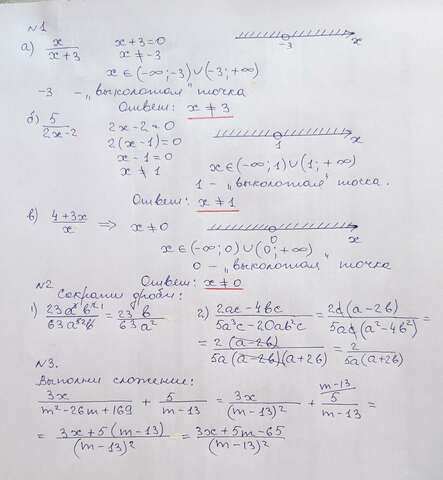 №1
а) x/(x+3)   x+3=0   -3   x
x ≠ -3
x ∈ (-∞; -3) ∪ (-3; +∞)
-3 - „выколотая" точка
Ответ: x ≠ 3
б) 5/(2x-2)   2x-2=0   1   x
2(x-1)=0
x-1=0   x ∈ (-∞; 1) ∪ (1; +∞)
x ≠ 1   1 - „выколотая" точка.
Ответ: x ≠ 1
в) (4+3x)/x ⇒ x ≠ 0   0   x
x ∈ (-∞; 0) ∪ (0; +∞)
0 - „выколотая" точка
Ответ: x ≠ 0
№2
Сократи дроби:
1) = 23 b/(63 a²)   2) (2ac-4bc)/(5a³c-20ab²c) = 2c(a-2b)/(5ac(a²-4b²)) =
= 2(a-2b)/(5a(a-2b)(a+2b)) = 2/(5a(a+2b))
№3.
Выполни сложение:
3x/(m²-26m+169) + 5/(m-13) = 3x/(m-13)² + m-13/5/(m-13) =
= (3x+5(m-13))/(m-13)² = (3x+5m-65)/(m-13)²